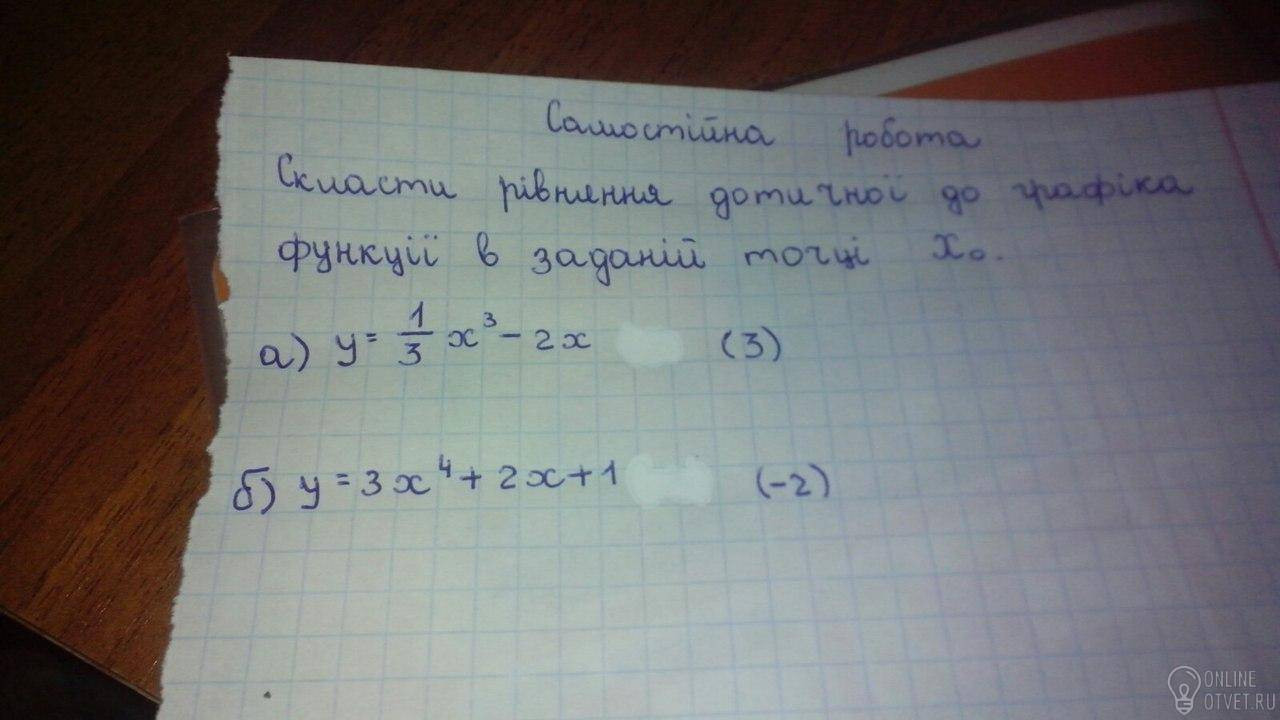 Самостійна робота
Скласти рівняння дотичної до графіка
функції в заданій точці x₀.
а) y = 1/3 x³ - 2x (3)
б) y = 3x⁴ + 2x + 1 (-2)
ONLINE
OTVET.RU